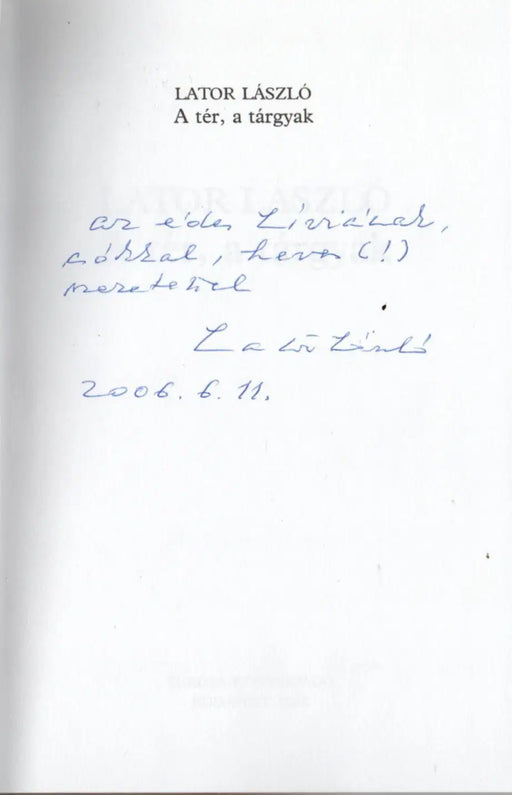 LATOR LÁSZLÓ
A tér, a tárgyak
az édes Líviának,
csókkal, heves (!)
szeretettel
Lator László
2006. 6. 11.